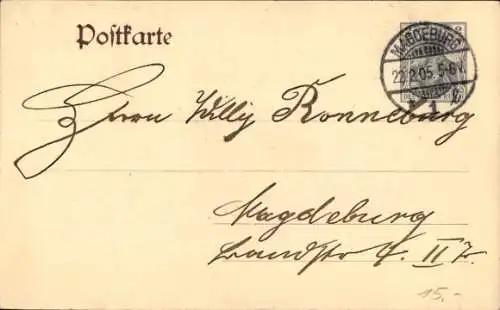 Postkarte
MAGDEBURG
22.2.05. 5-6 V.
* 1 f
Herrn Willy Ronneburg
Magdeburg
Landstr. 7. II Tr.
15.-